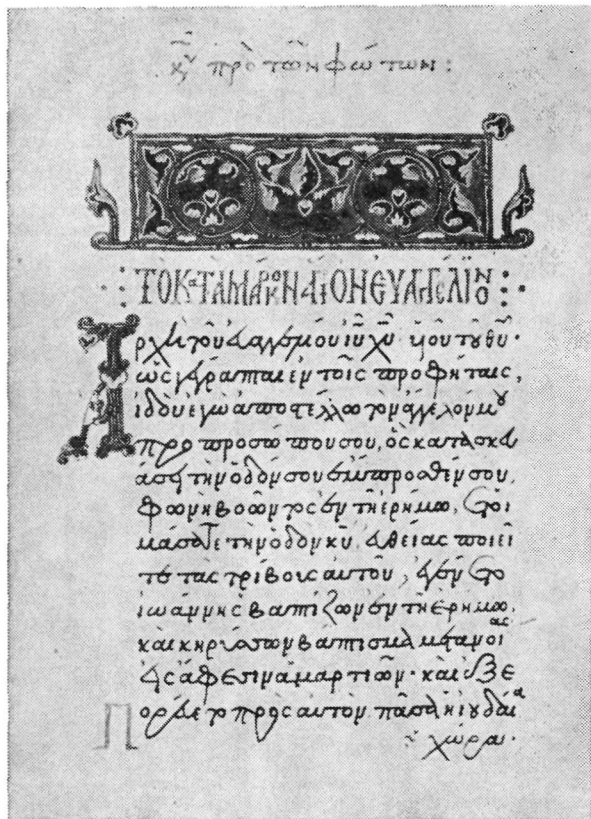 κυ̅ πρὸ τῶν φώτων:
ΤΟ ΚΑΤΑ ΜΑΡΚΟΝ ΑΓΙΟΝ ΕΥΑΓΓΕΛΙΟΝ
Ἀρχὴ τοῦ εὐαγγελίου ιυ̅ χυ̅ υἱοῦ τοῦ θυ̅·
ὡς γέγραπται ἐν τοῖς προφήταις,
ἰδοὺ ἐγὼ ἀποστέλλω τὸν ἄγγελόν μου
πρὸ προσώπου σου, ὃς κατασκευ
άσει τὴν ὁδόν σου ἔμπροσθέν σου,
φωνὴ βοῶντος ἐν τῇ ἐρήμω, ἑτοι
μάσατε τὴν ὁδὸν κυ̅, εὐθείας ποιεῖ
τε τὰς τρίβους αὐτοῦ, ἐγένετο
ἰωάννης βαπτίζων ἐν τῇ ἐρήμω,
καὶ κηρύσσων βάπτισμα μετανοίας
εἰς ἄφεσιν ἁμαρτιῶν· καὶ ἐξε
Πορεύετο πρὸς αὐτὸν πᾶσα ἡ ἰουδαία
χώρα·